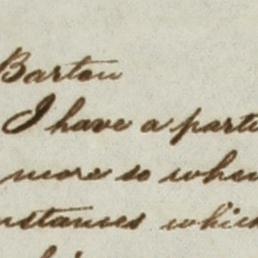 Barton
I have a parti
more so when
nstances which